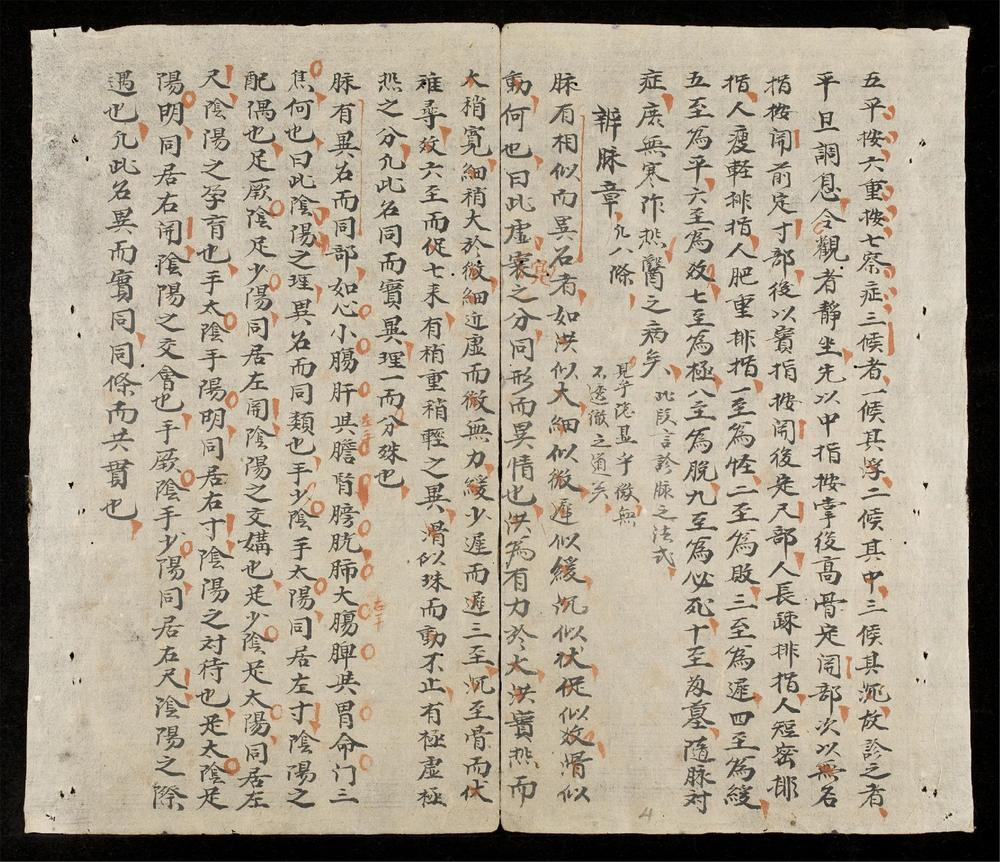 五平按六重按七察症三候者一候其浮二候其中三候其沉故診之者
平旦調息令觀者靜坐先以中指按掌後高骨定関部次以無名
指按関前定寸部後以寶指按関後定尺部人長疎排指人短密排
指人瘦輕排指人肥重排指一至為怪二至為敗三至為遲四至為緩
五至為平六至為数七至為極八至為脫九至為必死十至為墓隨脉对
症庶無寒作热醫之病矣 此段言診脉之法式
見乎隐显乎微無
不透徹之道矣
辨脉章 凡八條
脉有相似而異名者如洪似大細似微遲似緩沉似伏促似数滑似
動何也曰此虚寔之分同形而異情也洪為有力於大洪實热而
大稍寛細稍大於微細近虚而微無力緩少遲而遲三至沉至骨而伏
难尋数六至而促七来有稍重稍輕之異滑似珠而動不止有極虚極
热之分凡此名同而實異理一而分殊也
脉有異名而同部如心小腸肝共膽腎膀胱肺大腸脾共胃命门三
左手
右手
焦何也曰此陰陽之理異名而同類也手少陰手太陽同居左寸陰陽之
配偶也足厥陰足少陽同居左関陰陽之交媾也足少陰足太陽同居左
尺陰陽之孕育也手太陰手陽明同居右寸陰陽之对待也足太陰足
陽明同居右関陰陽之交會也手厥陰手少陽同居右尺陰陽之際
遇也凡此名異而實同同條而共貫也
4